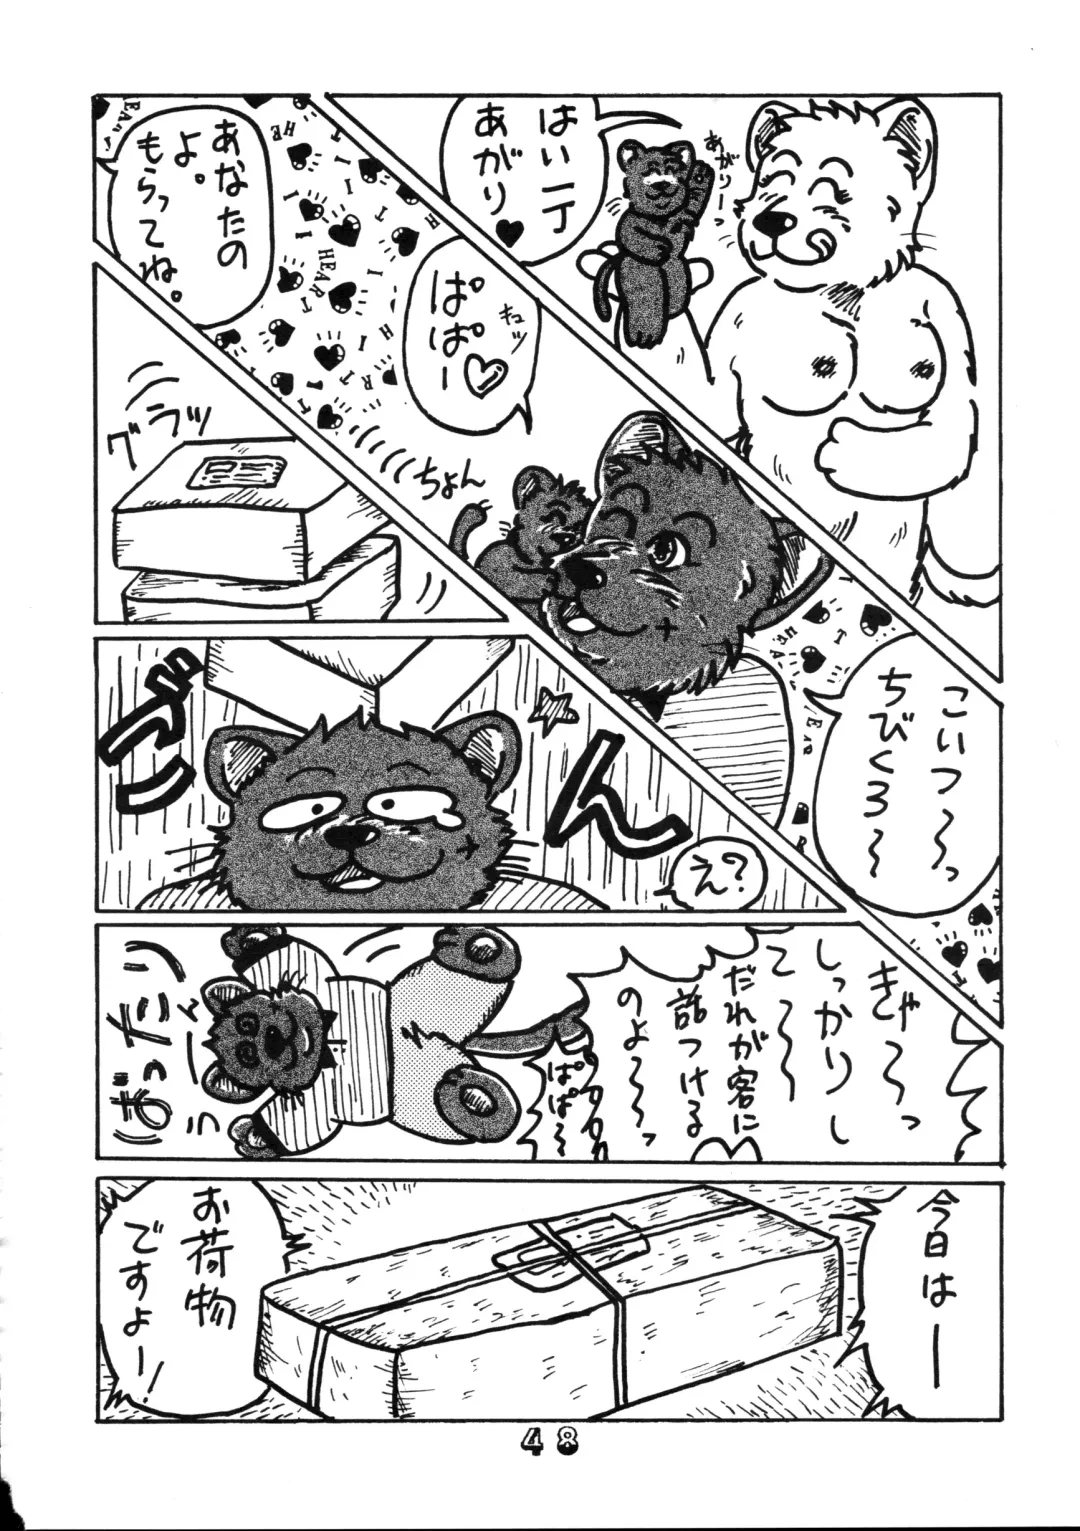 はい一丁
あがり♥
あがりーっ
あなたの
よ。
もらってね。
ぱぱー♡
キュッ
ちょん
こいつ〜っ
ちびくろ〜
グラッ
ごん
え?
きゃ〜っ
しっかりし
て〜〜
だれが客に
話つける
のよ〜っ
ぱぱ〜
ばったり
う〜ん
今日はー
お荷物
ですよー!
48